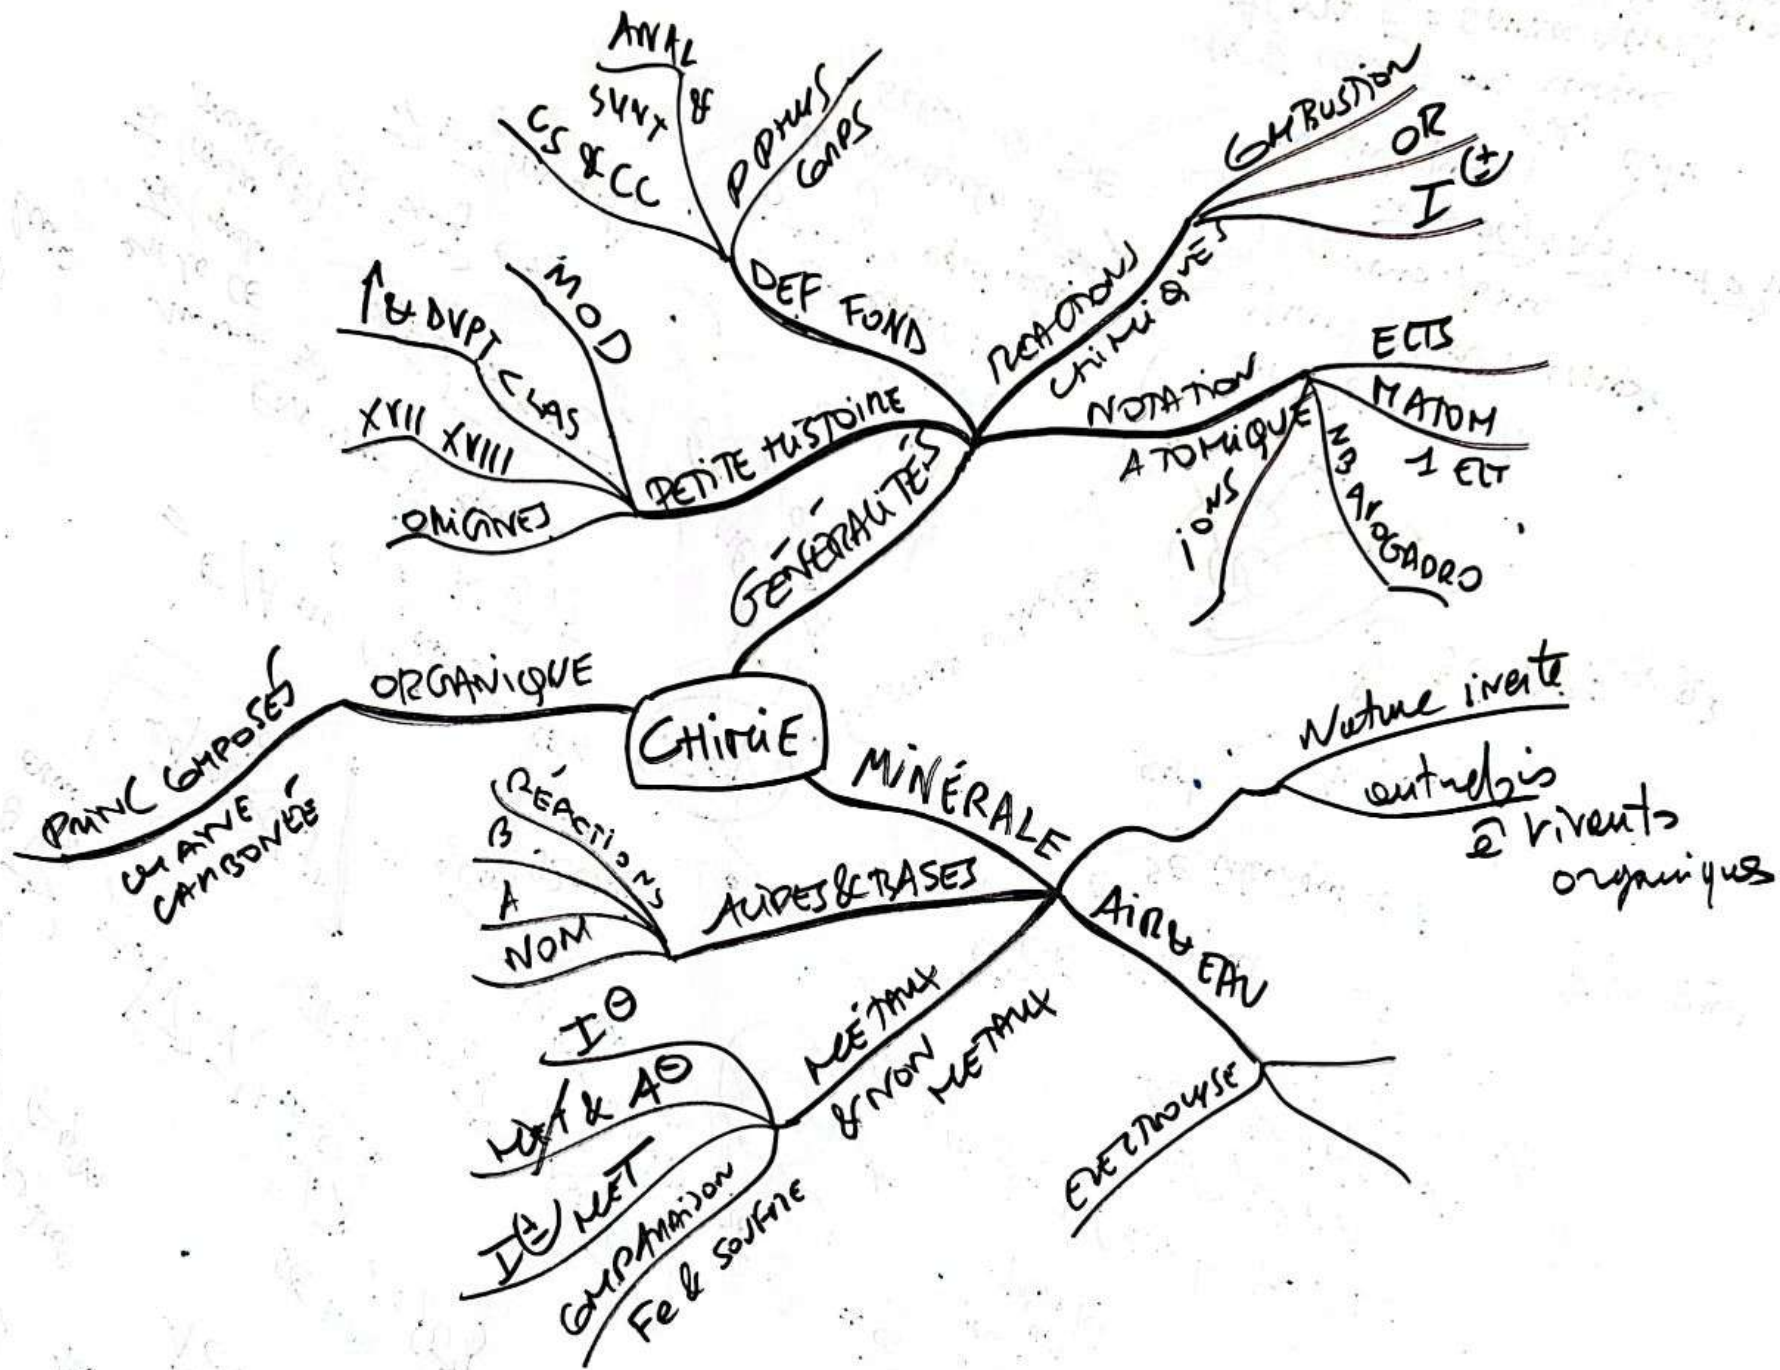 CHIMIE
GÉNÉRALITÉS
PETITE HISTOIRE
ORIGINES
XVII XVIII
CLAS
↑ & DVPT
MOD
DEF FOND
CS & CC
ANAL
& SYNT
CORPS
RÉACTIONS
CHIMIQUES
COMBUSTION
OR
I (±)
NOTATION
ATOMIQUE
ELTS
M ATOM
1 ELT
NB AVOGADRO
IONS
ORGANIQUE
PRINC COMPOSÉS
CHAINE
CARBONÉE
MINÉRALE
Nature inerte
autrefois
ê vivants
organiques
AIR & EAU
ELECTROLYSE
ACIDES & BASES
RÉACTIONS
B
A
NOM
MÉTAUX
& NON
METAUX
I ⊖
MET & A ⊖
I (±) MET
COMPARAISON
Fe & SOUFRE